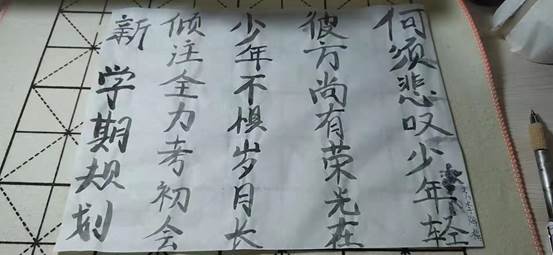 何须悲叹少年轻
彼方尚有荣光在
少年不惧岁月长
倾注全力考初会
新学期规划